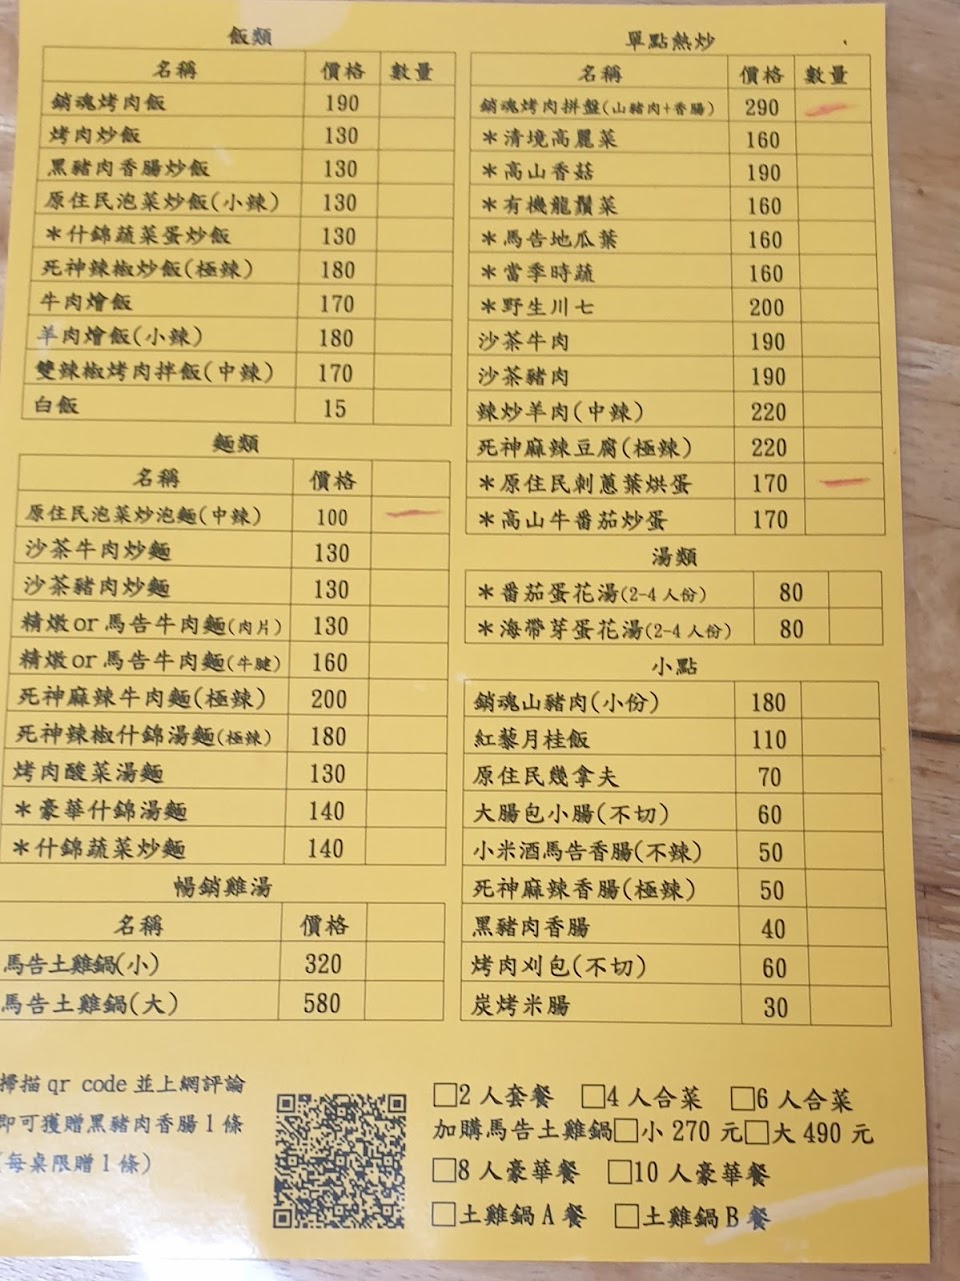 飯類
名稱 價格 數量
銷魂烤肉飯 190
烤肉炒飯 130
黑豬肉香腸炒飯 130
原住民泡菜炒飯(小辣) 130
＊什錦蔬菜蛋炒飯 130
死神辣椒炒飯(極辣) 180
牛肉燴飯 170
羊肉燴飯(小辣) 180
雙辣椒烤肉拌飯(中辣) 170
白飯 15
麵類
名稱 價格
原住民泡菜炒泡麵(中辣) 100
沙茶牛肉炒麵 130
沙茶豬肉炒麵 130
精燉or馬告牛肉麵(肉片) 130
精燉or馬告牛肉麵(牛腱) 160
死神麻辣牛肉麵(極辣) 200
死神辣椒什錦湯麵(極辣) 180
烤肉酸菜湯麵 130
＊豪華什錦湯麵 140
＊什錦蔬菜炒麵 140
暢銷雞湯
名稱 價格
馬告土雞鍋(小) 320
馬告土雞鍋(大) 580
單點熱炒
名稱 價格 數量
銷魂烤肉拼盤(山豬肉+香腸) 290
＊清境高麗菜 160
＊高山香菇 190
＊有機龍鬚菜 160
＊馬告地瓜葉 160
＊當季時蔬 160
＊野生川七 200
沙茶牛肉 190
沙茶豬肉 190
辣炒羊肉(中辣) 220
死神麻辣豆腐(極辣) 220
＊原住民刺蔥葉烘蛋 170
＊高山牛番茄炒蛋 170
湯類
＊番茄蛋花湯(2-4人份) 80
＊海帶芽蛋花湯(2-4人份) 80
小點
銷魂山豬肉(小份) 180
紅藜月桂飯 110
原住民幾拿夫 70
大腸包小腸(不切) 60
小米酒馬告香腸(不辣) 50
死神麻辣香腸(極辣) 50
黑豬肉香腸 40
烤肉刈包(不切) 60
炭烤米腸 30
掃描qr code並上網評論
即可獲贈黑豬肉香腸1條
(每桌限贈1條)
□2人套餐 □4人合菜 □6人合菜
加購馬告土雞鍋□小270元□大490元
□8人豪華餐 □10人豪華餐
□土雞鍋A餐 □土雞鍋B餐